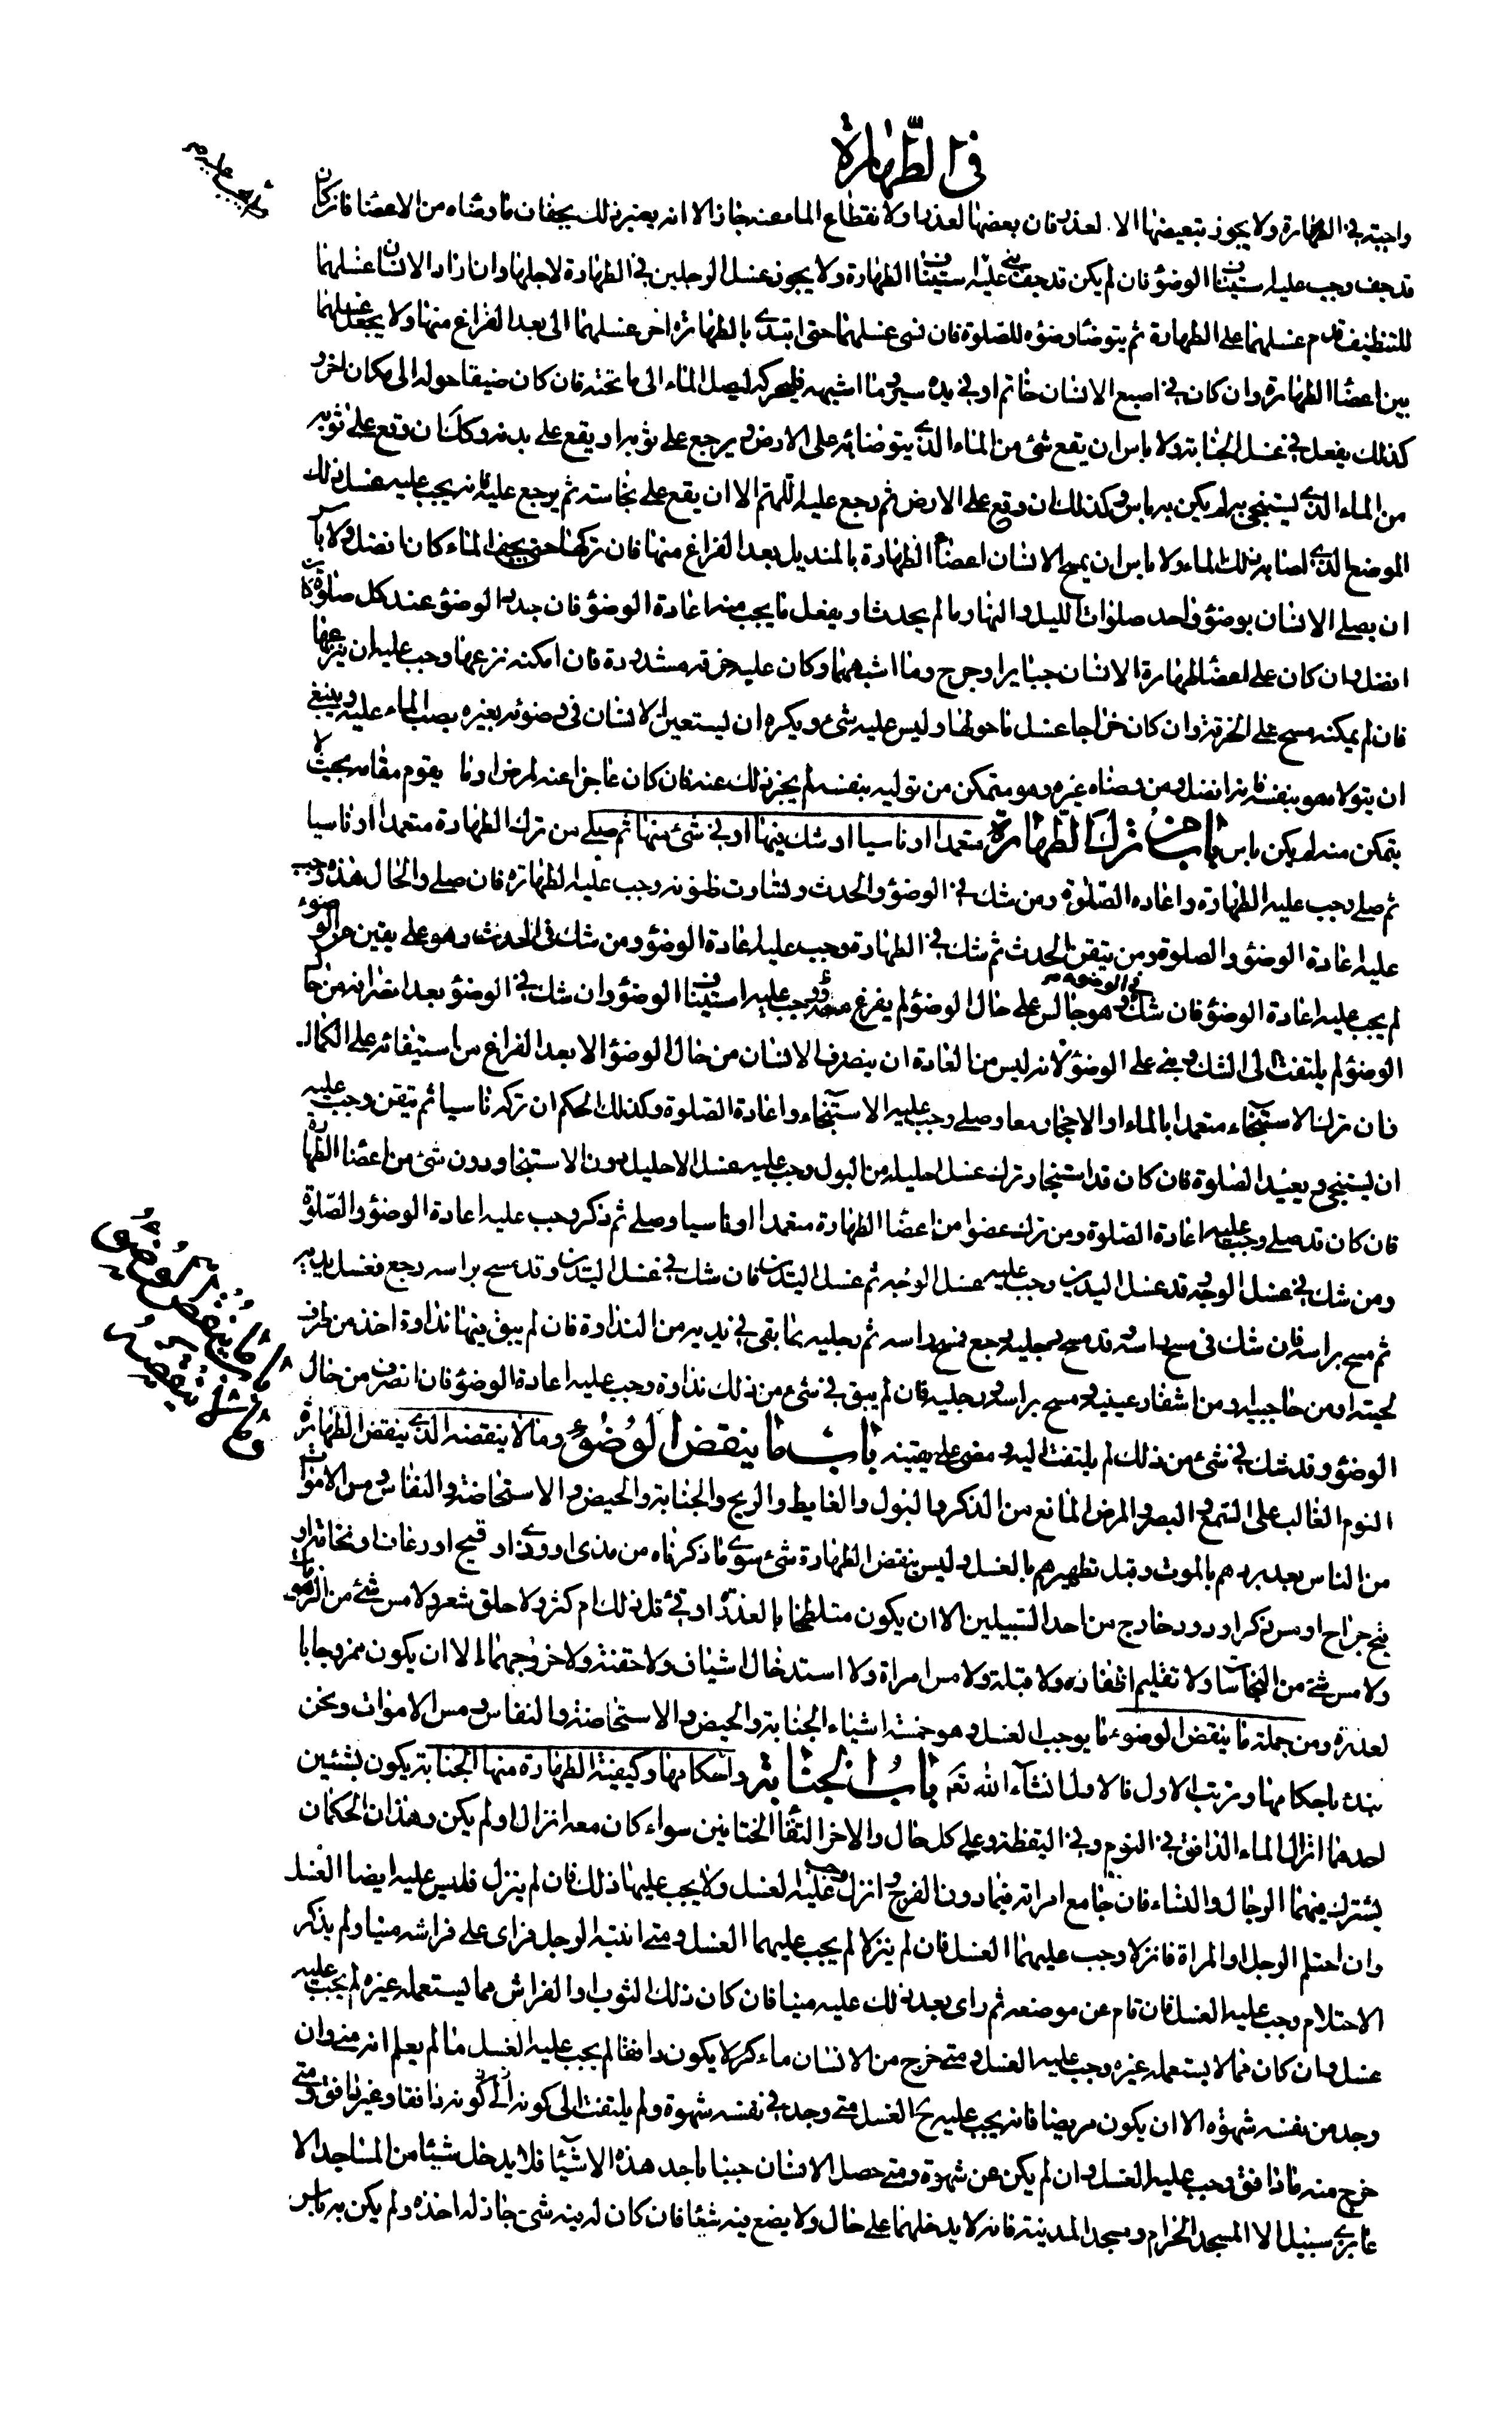 في الطهارة
واجبة في الطهارة ولا يجوز تبعيضها الا لعذر فان بعضها لعذر او لانقطاع الماء عنه جاز الا انه يعتبر ذلك بجفاف ما وضاه من الاعضا فان كان
قد جف وجب عليه استيناف الوضؤ فان لم يكن قد جف بنى عليه استيناف الطهارة ولا يجوز غسل الرجلين في الطهارة لاجلها وان اراد الانسان غسلهما
للتنظيف قدم غسلهما على الطهارة ثم يتوضا وضوه للصلوة فان نسى غسلهما حتى ابتدى بالطهارة اخر غسلهما الى بعد الفراغ منها ولا يجعل غسلهما
بين اعضا الطهارة وان كان في اصبع الانسان خاتم او في يده سير وما اشبهه فليحركه ليصل الماء الى ما تحته فان كان ضيقا حوله الى مكان اخر و
كذلك يفعل في غسل الجنابة ولا باس ان يقع شئ من الماء الذى يتوضا به على الارض ويرجع على ثوبه او يقع على بدنه وكك ان وقع على ثوبه
من الماء الذى يستنجى به لم يكن به باس وكذلك ان وقع على الارض ثم رجع عليه اللهم الا ان يقع على نجاسة ثم يرجع عليه فانه يجب عليه غسل ذلك
الموضع الذى اصابه ذلك الماء ولا باس ان يمسح الانسان اعضاء الطهارة بالمنديل بعد الفراغ منها فان تركها حتى يجف الماء كان افضل ولا باس
ان يصلى الانسان بوضؤ واحد صلوات الليل والنهار ما لم يحدث او يفعل ما يجب منه اعادة الوضؤ فان جدد الوضؤ عند كل صلوة كان
افضل وان كان على اعضا طهارة الانسان جباير او جرح وما اشبههما وكان عليه خرقة مشدودة فان امكنه نزعها وجب عليه ان ينزعها
فان لم يمكنه مسح على الخرقة وان كان خراجا غسل ما حولها وليس عليه شئ ويكره ان يستعين الانسان في وضوئه بغيره يصب الماء عليه وينبغي
ان يتولاه هو بنفسه فانه افضل ومن وضاه غيره وهو متمكن من توليه بنفسه لم يجز ذلك عنه فان كان عاجزا عنه لمرض او ما يقوم مقامه بحيث لا
يتمكن منه لم يكن باس باب من ترك الطهارة متعمدا او ناسيا او شك فيها او في شئ منها ثم صلى من ترك الطهارة متعمدا او ناسيا
ثم صلى وجب عليه الطهارة واعاده الصلوة ومن شك في الوضؤ والحدث وتساوت ظنونه وجب عليه الطهارة فان صلى والحال هذه وجب
عليه اعادة الوضؤ والصلوة ومن تيقن الحدث ثم شك في الطهارة وجب عليه اعادة الوضؤ ومن شك في الحدث وهو على يقين من الوضوء
لم يجب عليه اعادة الوضؤ فان شك في الوضوء وهو جالس على حال الوضؤ لم يفرغ منه وجب عليه استيناف الوضؤ وان شك في الوضؤ بعد انصرافه من حال
الوضؤ لم يلتفت الى الشك وبنى على الوضؤ لانه ليس من العادة ان ينصرف الانسان من حال الوضؤ الا بعد الفراغ من استيفائه على الكمال
فان ترك الاستنجاء متعمدا بالماء او الاحجار معا وصلى وجب عليه الاستنجاء واعادة الصلوة وكذلك الحكم ان تركه ناسيا ثم تيقن وجب عليه
ان يستنجى ويعيد الصلوة فان كان قد استنجا وترك غسل احليله من البول وجب عليه غسل الاحليل دون الاستنجا ودون شئ من اعضا الطهارة
فان كان قد صلى وجب عليه اعادة الصلوة ومن ترك عضوا من اعضا الطهارة متعمدا او ناسيا وصلى ثم ذكر وجب عليه اعادة الوضؤ والصلوة
ومن شك في غسل الوجه وقد غسل اليدين وجب عليه غسل الوجه ثم غسل اليدين فان شك في غسل اليدين وقد مسح براسه رجع فغسل يديه
ثم مسح براسه فان شك في مسح راسه وقد مسح رجليه رجع فمسح راسه ثم رجليه بما بقى في يديه من النداوة فان لم يبق فيها نداوة اخذ من طرف
لحيته او من حاجبيه او من اشفار عينيه ومسح براسه ورجليه فان لم يبق في شئ من ذلك نداوة وجب عليه اعادة الوضؤ فان انصرف من حال
الوضؤ وقد شك في شئ من ذلك لم يلتفت اليه ومضى على يقينه باب ما ينقض الوضوء وما لا ينقضه الذى ينقض الطهارة
النوم الغالب على السمع والبصر والمرض المانع من الذكر والبول والغايط والريح والجنابة والحيض والاستحاضة والنفاس ومس الاموات
من الناس بعد بردهم بالموت وقبل تطهيرهم بالغسل وليس ينقض الطهارة شئ سوى ما ذكرناه من مذى او وذى او قيح او رعاف او نخامة او
فتح جراح او مس ذكر او دود خارج من احد السبيلين الا ان يكون متلطخا بالعذرة او قئ قل ذلك ام كثر ولا حلق شعر ولا مس شئ من الزهومات
ولا مس شئ من النجاسات ولا تقليم اظفاره ولا قبلة ولا مس امراة ولا استدخال اشياف ولا حقنة ولا خروجهما الا ان يكون ممزوجا با
لعذرة ومن جملة ما ينقض الوضوء ما يوجب الغسل وهو خمسة اشياء الجنابة والحيض والاستحاضة والنفاس ومس الاموات ونحن
نبدء باحكامها ونرتب الاول فالاول انشاء الله تعَ باب الجنابة واحكامها وكيفية الطهارة منها الجنابة يكون بشئين
احدهما انزال الماء الدافق في النوم وفي اليقظة وعلى كل حال والاخر التقاء الختانين سواء كان معه انزال او لم يكن وهذان الحكمان
يشترك فيهما الرجال والنساء فان جامع امراته فيما دون الفرج وانزل وجب عليه الغسل ولا يجب عليها ذلك فان لم ينزل فليس عليه ايضا الغسل
وان احتلم الرجل او المراة فانزلا وجب عليهما الغسل فان لم ينزلا لم يجب عليهما الغسل ومتى انتبه الرجل فراى على فراشه منيا ولم يذكر
الاحتلام وجب عليه الغسل فان قام عن موضعه ثم راى بعد ذلك عليه منيا فان كان ذلك الثوب او الفراش مما يستعمله غيره لم يجب عليه
غسل وان كان مما لا يستعمله غيره وجب عليه الغسل ومتى خرج من الانسان ماء كثير لا يكون دافقا لم يجب عليه الغسل ما لم يعلم انه منى وان
وجد من نفسه شهوه الا ان يكون مريضا فانه يجب عليه ح الغسل متى وجد في نفسه شهوة ولم يلتفت الى كونه دافقا وغير دافق ومتى
خرج منه ماء دافق وجب عليه الغسل وان لم يكن عن شهوة ومتى حصل الانسان جنبا باحد هذه الاشياء فلا يدخل شيئا من المساجد الا
عابرى سبيل الا المسجد الحرام ومسجد المدينة فانه لا يدخلهما على حال ولا يضع فيه شيئا فان كان له فيه شئ جاز له اخذه ولم يكن به باس
ما ينقض الوضوء